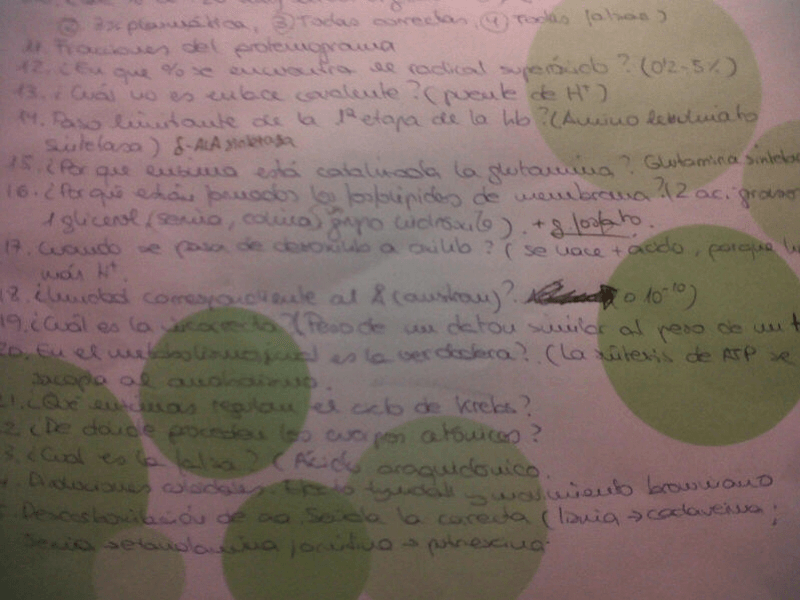 ② Explasmática, ③ Todas correctas, ④ Todas falsas)
11. Fracciones del proteinograma
12. ¿En que % se encuentra el radical superóxido? (0'2-5%)
13. ¿Cuál no es enlace covalente? (puente de H⁺)
14. Paso limitante de la 1ª etapa de la Hb? (Amino levulinato
sintetasa) δ-ALA sintetasa
15. ¿Por que enzima está catalizada la glutamina? Glutamina sintetas
16. ¿Por qué están formados los fosfolípidos de membrana? (2 ac. grasos
1 glicerol, (serina, colina), grupo hidroxilo). + g fosfato.
17. Cuando se pasa de desoxiHb a oxiHb? (se hace + ácido, porque
más H⁺.
18. ¿Unidad correspondiente al Å (amstrom)? o 10⁻¹⁰)
19. ¿Cuál es la incorrecta? (Peso de un dalton similar al peso de un
20. En el metabolismo es la verdadera? (La síntesis de ATP se
acopla al
21. ¿Qué enzimas regulan el ciclo de Krebs?
2. ¿De dónde proceden los cuerpos cetónicos?
3. ¿Cuál es la falsa? (Ácido araquidónico.
4. Disoluciones coloidales. Efecto tyndall y movimiento browniano
5. Descarboxilación de aa. Señala la correcta (lisina → cadaverina;
serina → etanolamina, ornitina → putrescina.